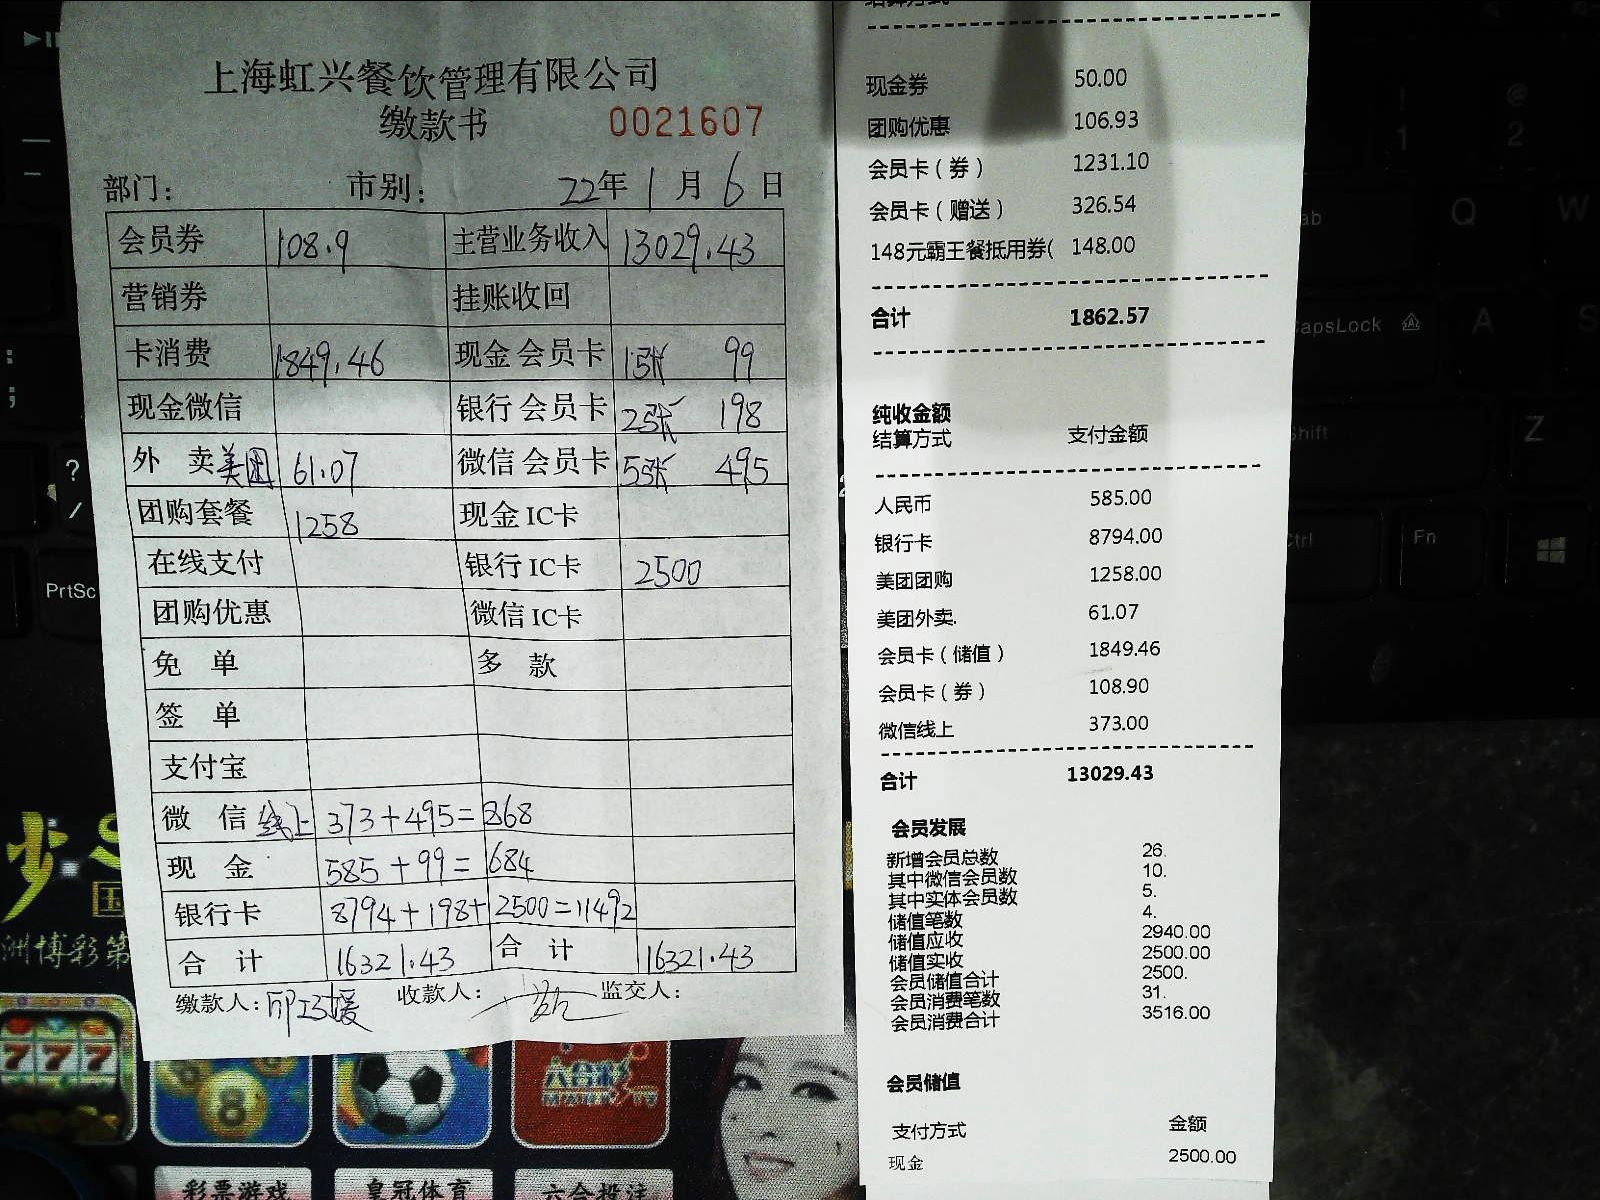 上海虹兴餐饮管理有限公司
缴款书 0021607
部门: 市别: 22年 1月 6日
会员券 108.9 主营业务收入 13029.43
营销券 挂账收回
卡消费 1849.46 现金会员卡 1张 99
现金微信 银行会员卡 2张 198
外 卖美团 61.07 微信会员卡 5张 495
团购套餐 1258 现金IC卡
在线支付 银行IC卡 2500
团购优惠 微信IC卡
免 单 多 款
签 单
支付宝
微 信线上 373+495=868
现 金 585+99=684
银行卡 8794+198+2500=11492
合 计 16321.43 合 计 16321.43
缴款人: 收款人: 监交人:
现金券 50.00
团购优惠 106.93
会员卡(券) 1231.10
会员卡(赠送) 326.54
148元霸王餐抵用券( 148.00
合计 1862.57
纯收金额
结算方式 支付金额
人民币 585.00
银行卡 8794.00
美团团购 1258.00
美团外卖. 61.07
会员卡(储值) 1849.46
会员卡(券) 108.90
微信线上 373.00
合计 13029.43
会员发展
新增会员总数 26.
其中微信会员数 10.
其中实体会员数 5.
储值笔数 4.
储值应收 2940.00
储值实收 2500.00
会员储值合计 2500.
会员消费笔数 31.
会员消费合计 3516.00
会员储值
支付方式 金额
现金 2500.00
PrtSc
Q
W
A
S
CapsLock
Z
Shift
Ctrl
Fn
洲博彩第
777
8
六合彩
彩票游戏
皇冠体育
六合投注